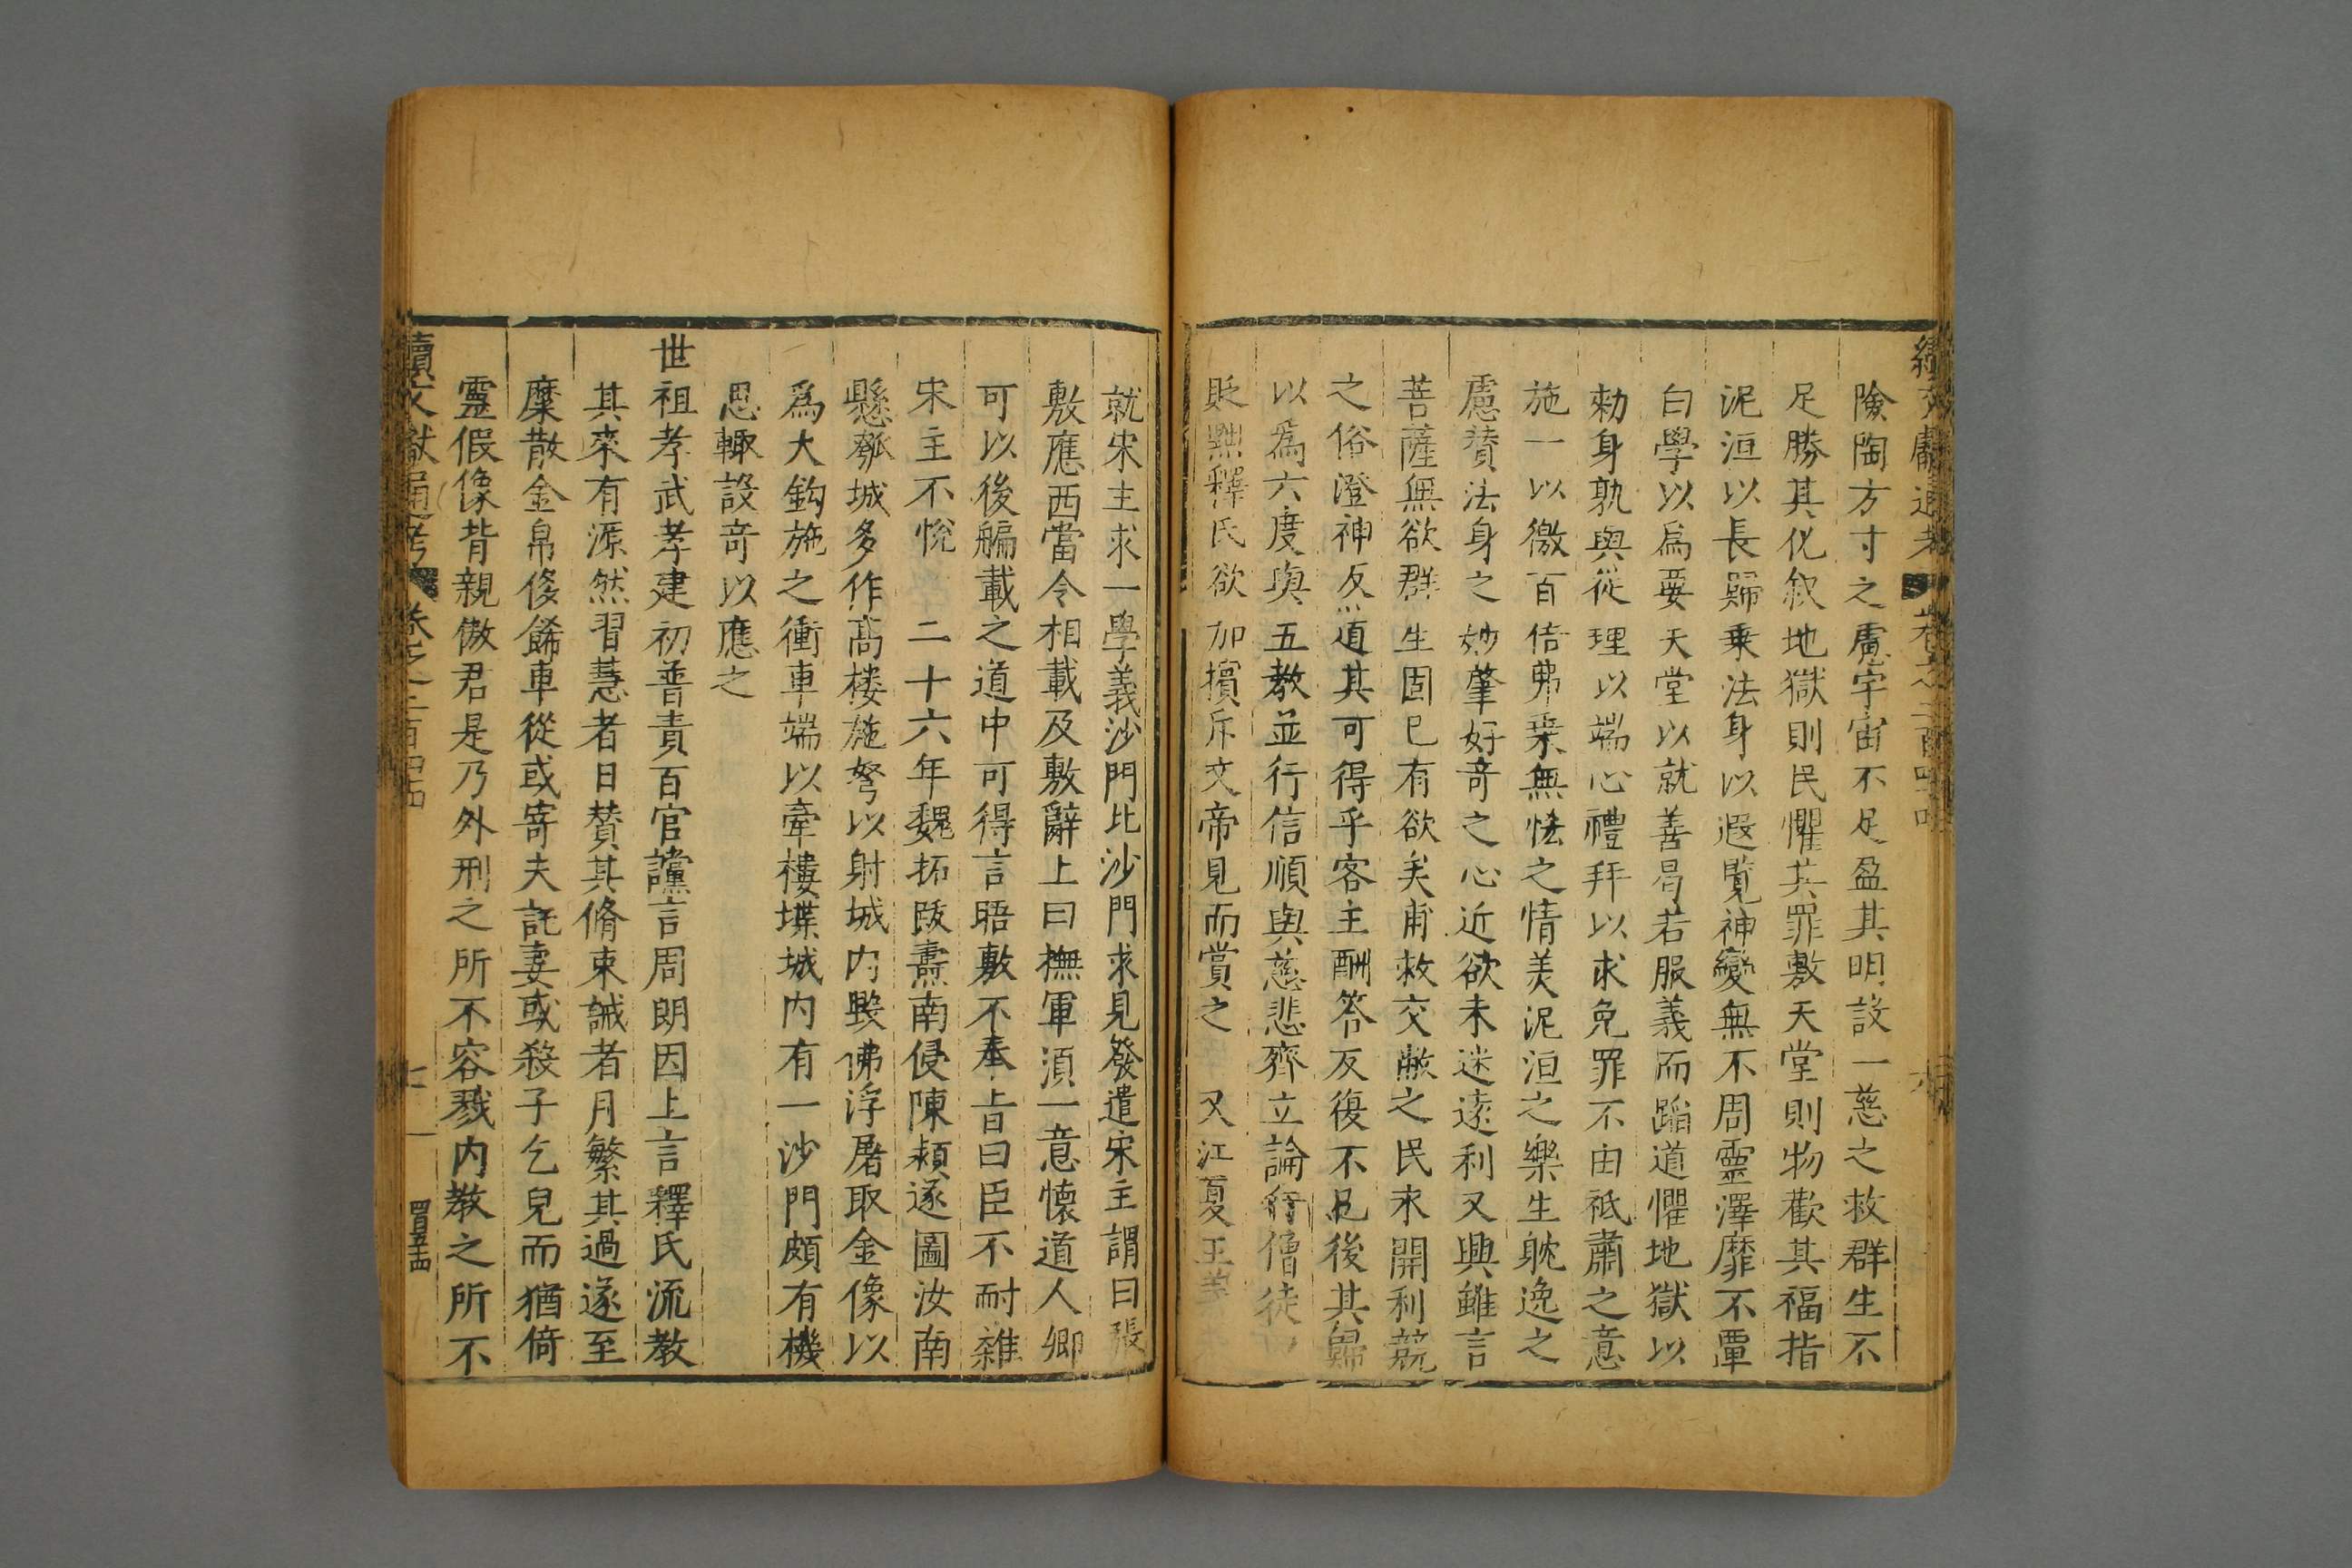 續文獻通考 卷之二百四 六
險陶方寸之慮宇宙不足盈其明設一慈之救群生不
足勝其化叙地獄則民懼其罪敷天堂則物歡其福指
泥洹以長歸乗法身以遐覧神變無不周靈澤靡不覃
曰學以爲要天堂以就善曷若服義而蹈道懼地獄以
勑身孰與從理以端心禮拜以求免罪不由祗肅之意
施一以徼百倍弗乗無恡之情美泥洹之樂生躭逸之
慮賛法身之妙肇好奇之心近欲未迷遠利又興雖言
菩薩無欲群生固巳有欲矣甫救交敝之民来開利競
之俗澄神反道其可得乎客主酬答反復不足後其歸
以爲六度與五教並行信順與慈悲齊立論行僧徒
貶黜釋氏欲加擯斥文帝見而賞之 又江夏王義
就宋主求一學義沙門比沙門求見發遣宋主謂曰張
敷應西當令相載及敷辭上曰撫軍湏一意懷道人卿
可以後艑載之道中可得言晤敷不奉旨曰臣不耐雜
宋主不悅 二十六年魏拓跋燾南侵陳潁遂圖汝南
懸瓠城多作髙楼施弩以射城内毀佛浮屠取金像以
爲大鈎施之衝車端以牽樓堞城内有一沙門頗有機
思輙設竒以應之
世祖孝武孝建初普責百官讜言周朗因上言釋氏流教
其來有源然習慧者日賛其脩束誡者月繁其過遂至
糜散金帛侈餙車從或寄夫託妻或殺子乞兒而猶倚
靈假像背親傲君是乃外刑之所不容戮内教之所不
續文獻通考 卷之二百四 七